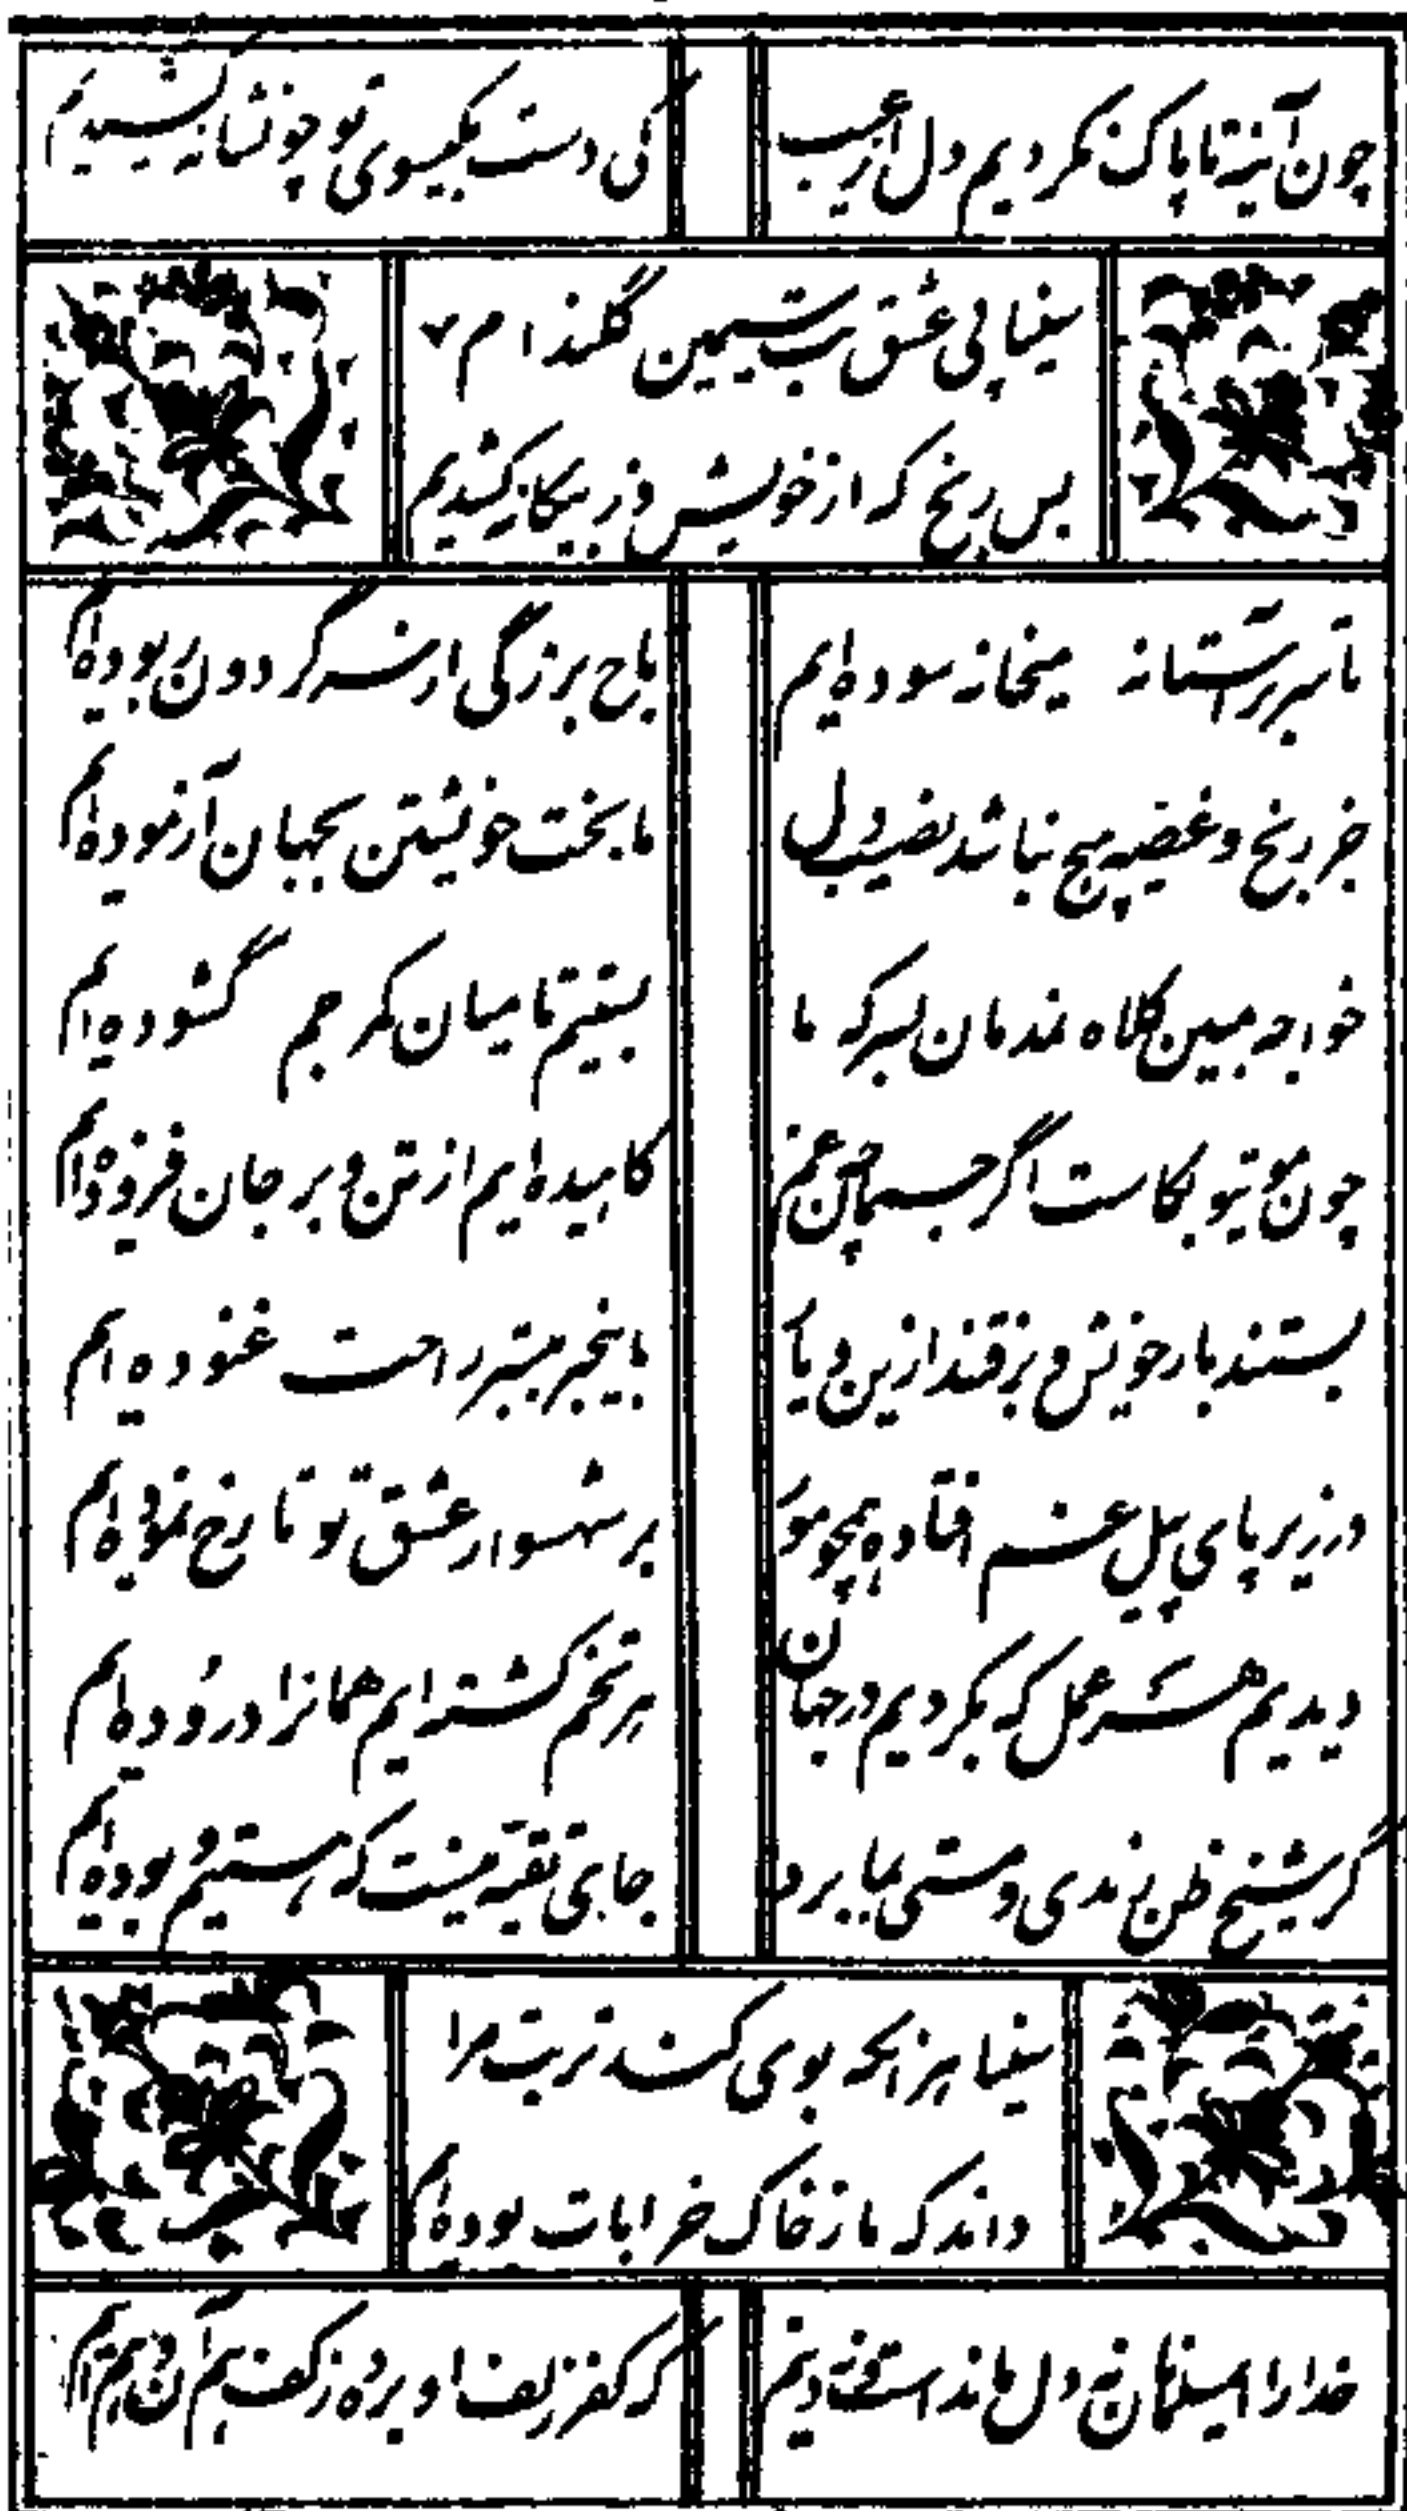 چون آینه تا پاک نکردیم دل از عیب
کی دست بگیسوی تو چون شانه کشیدیم
یغما پی عشق بت سیمین گلندام
بس رنج که از خویش و ز بیگانه کشیدیم
تا سر بر آستانه میخانه سوده‌ایم
باج بزرگی از سر گردون ربوده‌ایم
جز رنج و غصه هیچ نباشد نصیب دل
ما بخت خویشتن بجهان آزموده‌ایم
خواجه مبین کلاه نمدمان بسر که ما
بستیم تا میان کمر جم گشوده‌ایم
چون مو بکاست اگر جسم ما چه غم
کاهیده‌ایم از تن و بر جان فزوده‌ایم
بستند بار خویش و برفتند ازین و ما
ما بیخبر به بستر راحت غنوده‌ایم
در زیر پای پیل غم افتاده همچو مور
بر شهسوار عشق تو تا رخ نموده‌ایم
دیدیم هر عمل که بکردیم در جهان
هر تخم کشته‌ایم همانرا دروده‌ایم
گر شیخ ظن رندی و مستی بما برد
جای تقیه نیست که هستیم و بوده‌ایم
یغما هر آنکه بوی کند تربت مرا
داند که ما ز خاک خرابات بوده‌ایم
خدا را ایمسلمانان نه دل ماند است و نه دینم
که کفر زلف او برده ز کف هم آن و هم اینم